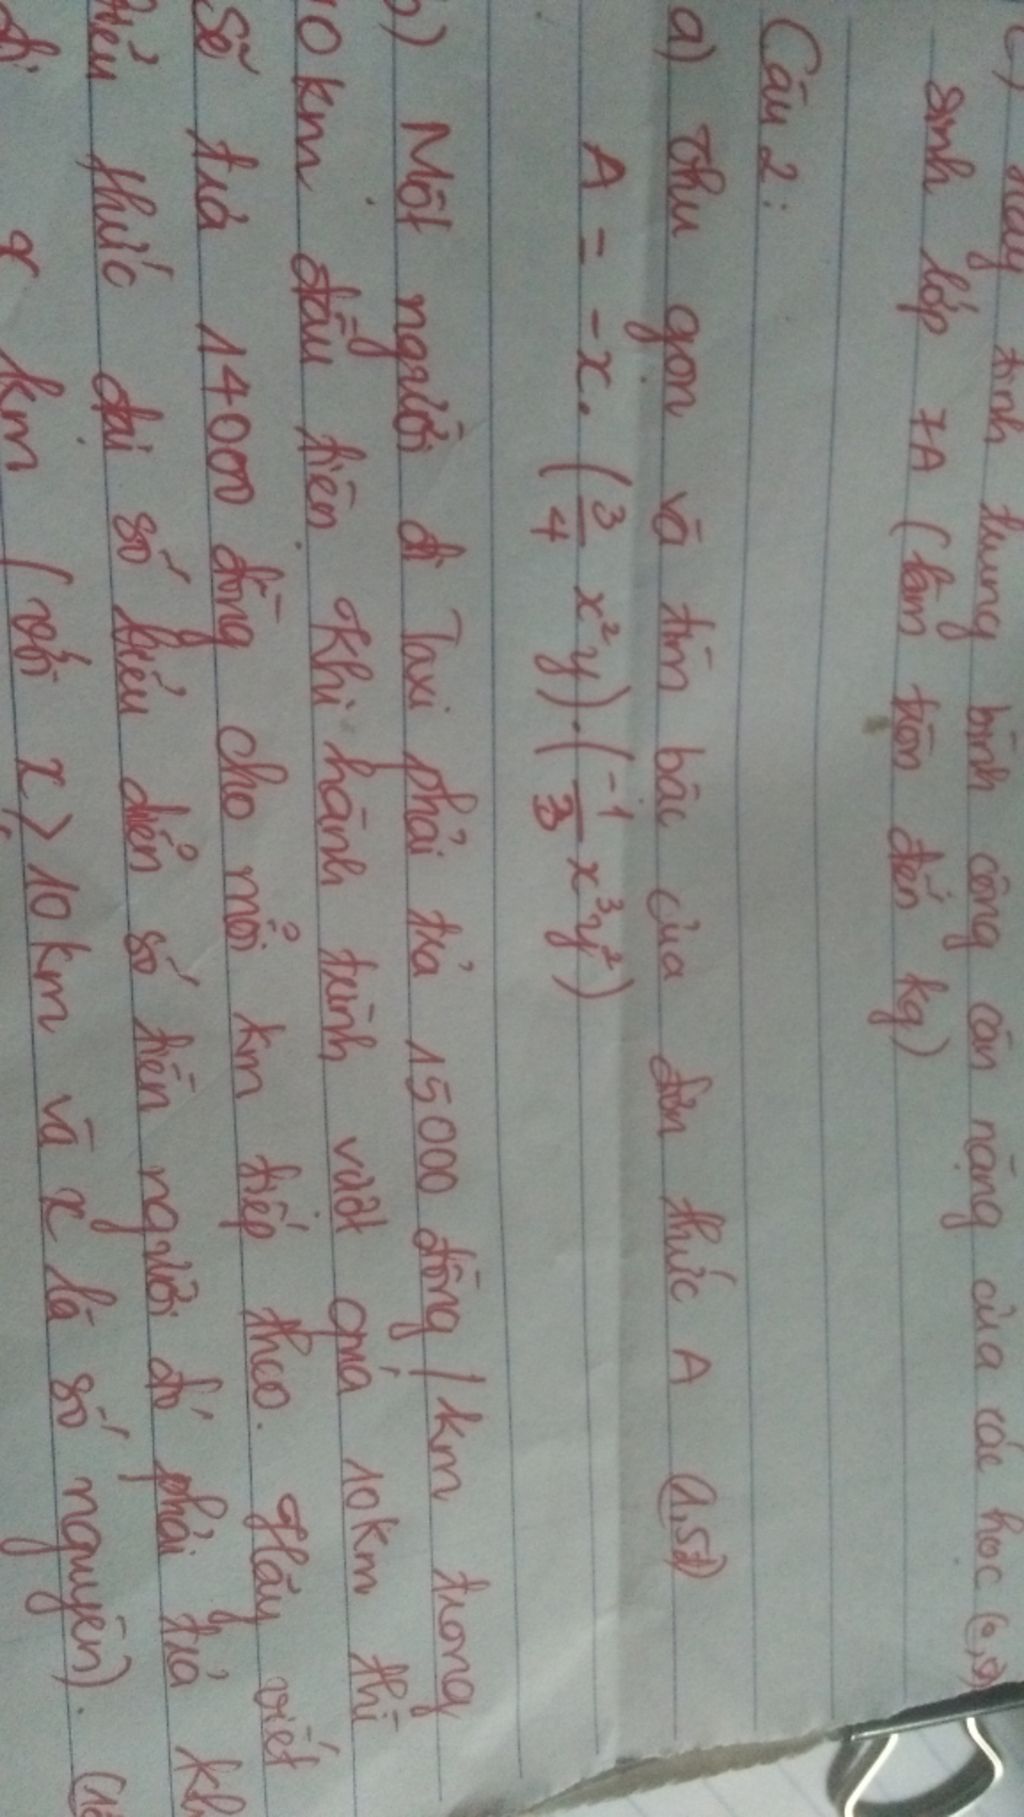 trung bình công cân nặng của các học
sinh lớp 7A (làm tròn đến kg)
Câu 2:
a) Thu gọn và tìm bậc của đơn thức A (1,5đ)
A = -x . (3/4 x²y) . (-1/3 x³y²)
b) Một người đi Taxi phải trả 15000 đồng/km trong
10 km đầu tiên. Khi hành trình vượt quá 10km thì
sẽ trả 14000 đồng cho mỗi km tiếp theo. Hãy viết
thức đại số biểu diễn số tiền người đó phải trả
km (với x > 10 km và x là số nguyên).